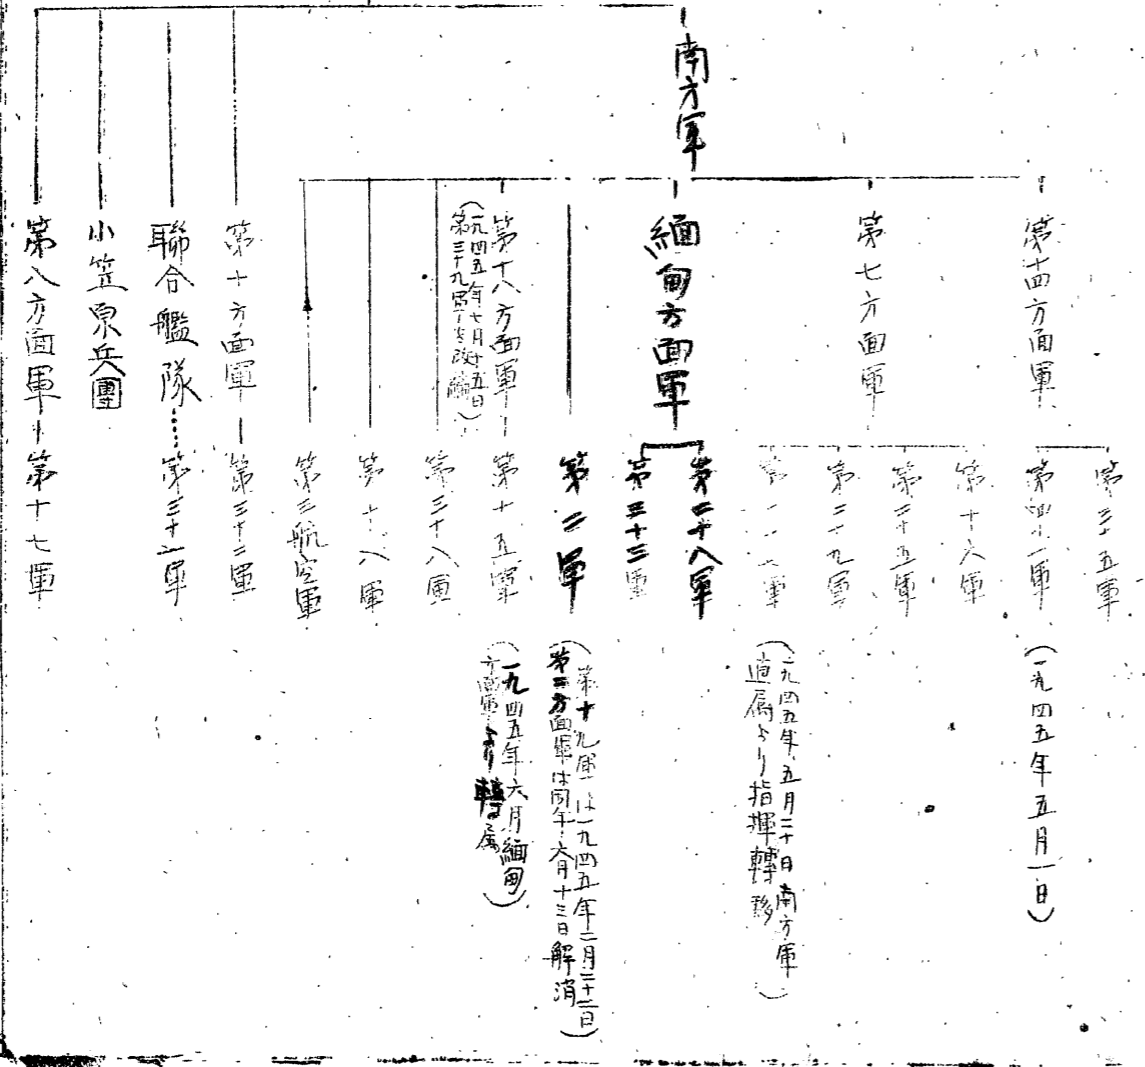 南方軍
第十四方面軍
第三十五軍
第四十一軍
(一九四五年五月一日)
第七方面軍
第十六軍
第二十五軍
第二十九軍
軍
(一九四五年五月二十日南方軍
直属より指揮轉移)
緬甸方面軍
第二十八軍
第三十三軍
第二軍
(第十九軍は一九四五年二月二十二日
第二方面軍は同年六月十三日解消)
第十八方面軍
(一九四五年七月十五日
第三十九軍を改編)
第十五軍
(一九四五年六月緬甸
方面軍より轉属)
第三十八軍
第十八軍
第三航空軍
第十方面軍
第三十二軍
聯合艦隊
第三十一軍
小笠原兵團
第八方面軍
第十七軍